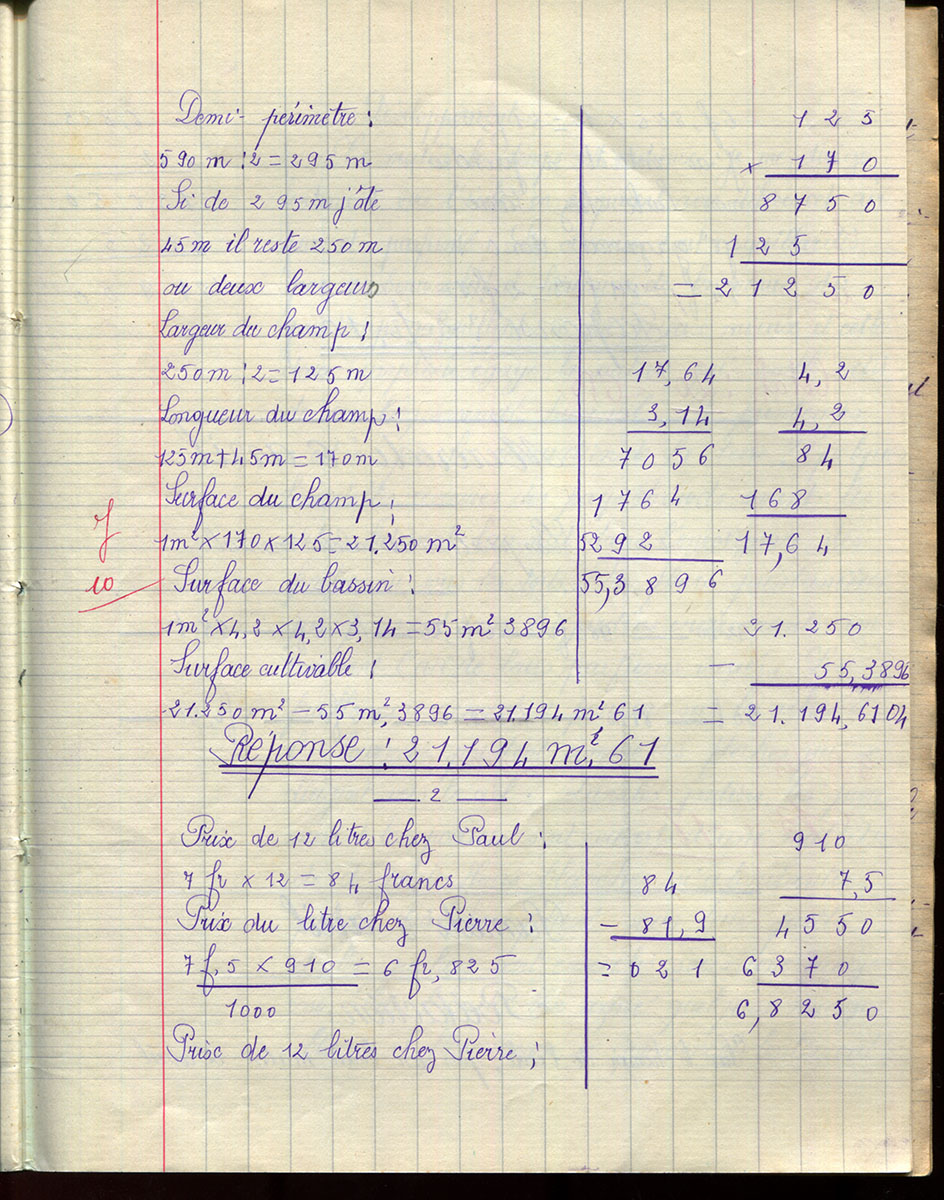 Demi-périmètre :
590 m : 2 = 295 m
Si de 295 m j'ôte
45 m il reste 250 m
ou deux largeurs
Largeur du champ :
250 m : 2 = 125 m
Longueur du champ :
125m + 45m = 170m
Surface du champ :
1m² × 170 × 125 = 21.250 m²
Surface du bassin :
1m² × 4,2 × 4,2 × 3,14 = 55 m² 3896
Surface cultivable :
21.250 m² - 55 m², 3896 = 21.194 m² 61
Réponse : 21.194 m², 61
125
× 170
8750
125
= 21250
17,64
3,14
7056
1764
5292
55,3896
4,2
4,2
84
168
17,64
21.250
- 55,3896
= 21.194,6104
10
2
Prix de 12 litres chez Paul :
7 fr × 12 = 84 francs
Prix du litre chez Pierre :
7 f, 5 × 910 = 6 fr, 825
1000
Prix de 12 litres chez Pierre :
84
- 81,9
= 021
910
7,5
4550
6370
6,8250